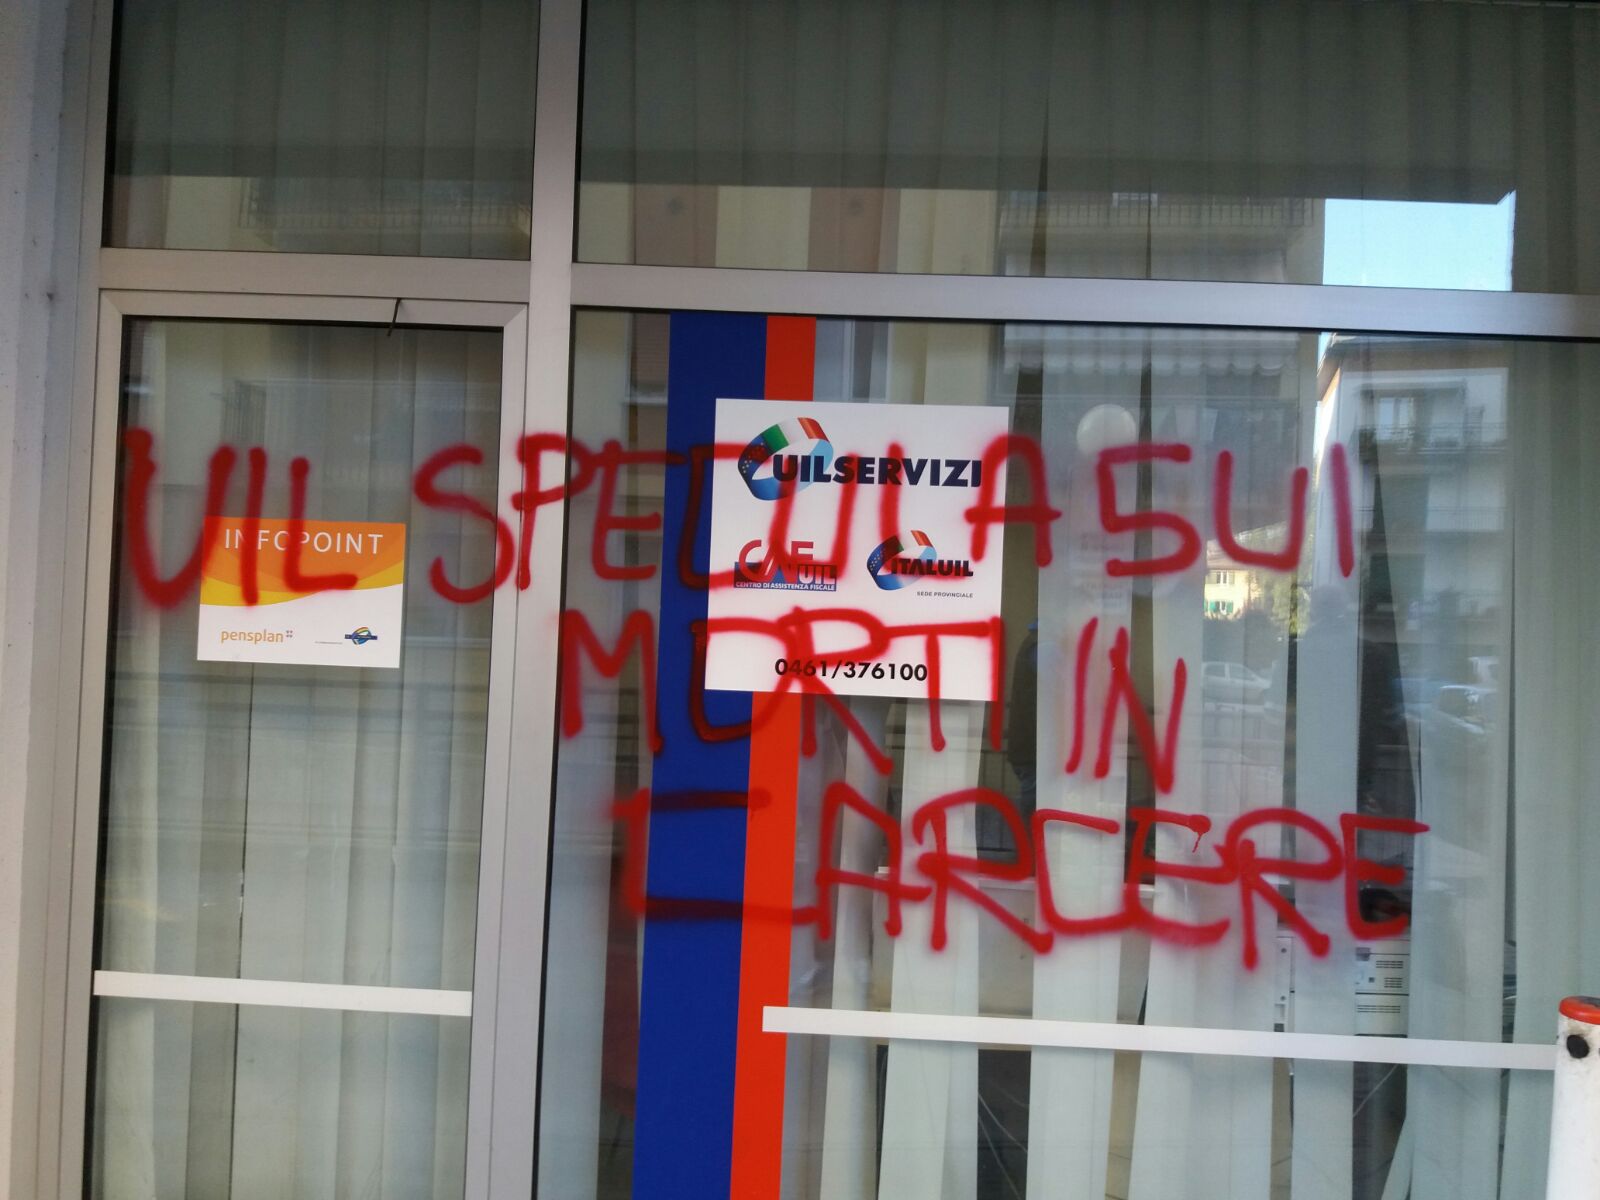 UIL SPECULA SUI
MORTI IN
CARCERE
INFOPOINT
pensplan
UILSERVIZI
CAF UIL
CENTRO DI ASSISTENZA FISCALE
ITALUIL
SEDE PROVINCIALE
0461/376100